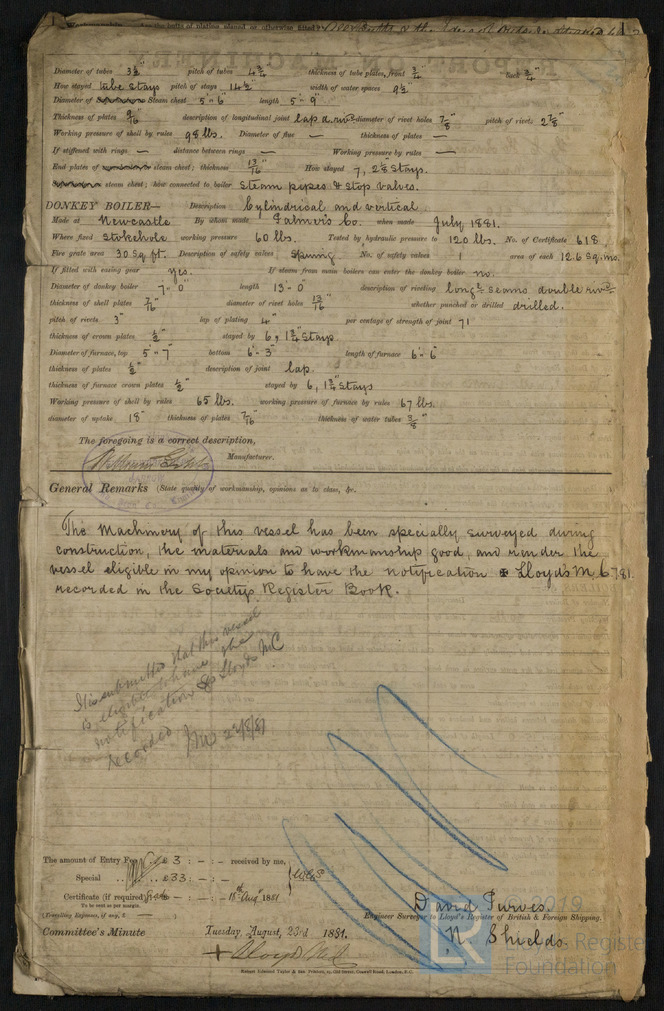 Diameter of tubes 3½" pitch of tubes 4¾" thickness of tube plates, front ¾" back ¾"
How stayed tube stays pitch of stays 14½ width of water spaces 9½"
Diameter of Steam chest 5'-6" length 5'-9"
Thickness of plates 9/16 description of longitudinal joint lap d. riv. diameter of rivet holes 7/8" pitch of rivets 2 7/8"
Working pressure of shell by rules 98 lbs. Diameter of flue — thickness of plates —
If stiffened with rings — distance between rings — Working pressure by rules —
End plates of steam chest; thickness 13/16" How stayed 7, 2⅛" Stays.
steam chest; how connected to boiler Steam pipes & stop valves.
DONKEY BOILER— Description Cylindrical and vertical
Made at Newcastle By whom made Palmer's Co. when made July 1881.
Where fixed Stokehole working pressure 60 lbs. Tested by hydraulic pressure to 120 lbs. No. of Certificate 618
Fire grate area 30 Sq. ft. Description of safety valves Spring No. of safety valves 1 area of each 12.6 Sq. ins.
If fitted with easing gear yes. If steam from main boilers can enter the donkey boiler no.
Diameter of donkey boiler 7'-0" length 13'-0" description of riveting long. seams double riv.
thickness of shell plates 7/16" diameter of rivet holes 13/16" whether punched or drilled drilled.
pitch of rivets 3" lap of plating 4" per centage of strength of joint 71
thickness of crown plates ½" stayed by 6, 1¾" Stays
Diameter of furnace, top 5'-7" bottom 6'-3" length of furnace 6'-6"
thickness of plates ½" description of joint lap.
thickness of furnace crown plates ½" stayed by 6, 1¾" Stays
Working pressure of shell by rules 65 lbs. working pressure of furnace by rules 67 lbs.
diameter of uptake 18" thickness of plates 7/16" thickness of water tubes 3/8"
The foregoing is a correct description,
Manufacturer.
General Remarks (State quality of workmanship, opinions as to class, &c.
The Machinery of this vessel has been specially surveyed during
construction, the materials and workmanship good, and render the
vessel eligible in my opinion to have the notification ✠ Lloyd's M.C. 7.81.
recorded in the Society's Register Book.
It is submitted that this vessel
is eligible to have the
notification ✠ Lloyds MC
recorded 22/8/81
The amount of Entry Fee £ 3 : - : - received by me,
Special .. £33 : - : -
Certificate (if required) : - : - 18th Augt 1881
To be sent as per margin.
(Travelling Expenses, if any, £ )
David Purves
Engineer Surveyor to Lloyd's Register of British & Foreign Shipping.
N. Shields.
Committee's Minute Tuesday, August, 23rd 1881.
2019
LR
Register
Foundation